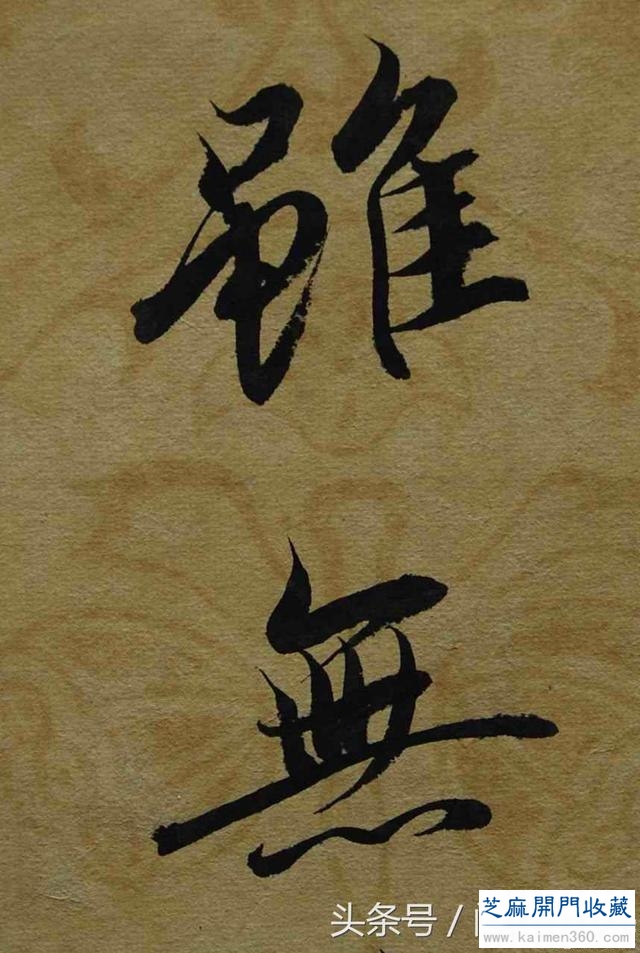 雖
無
头条号/
芝麻開門收藏
www.kaimen360.com